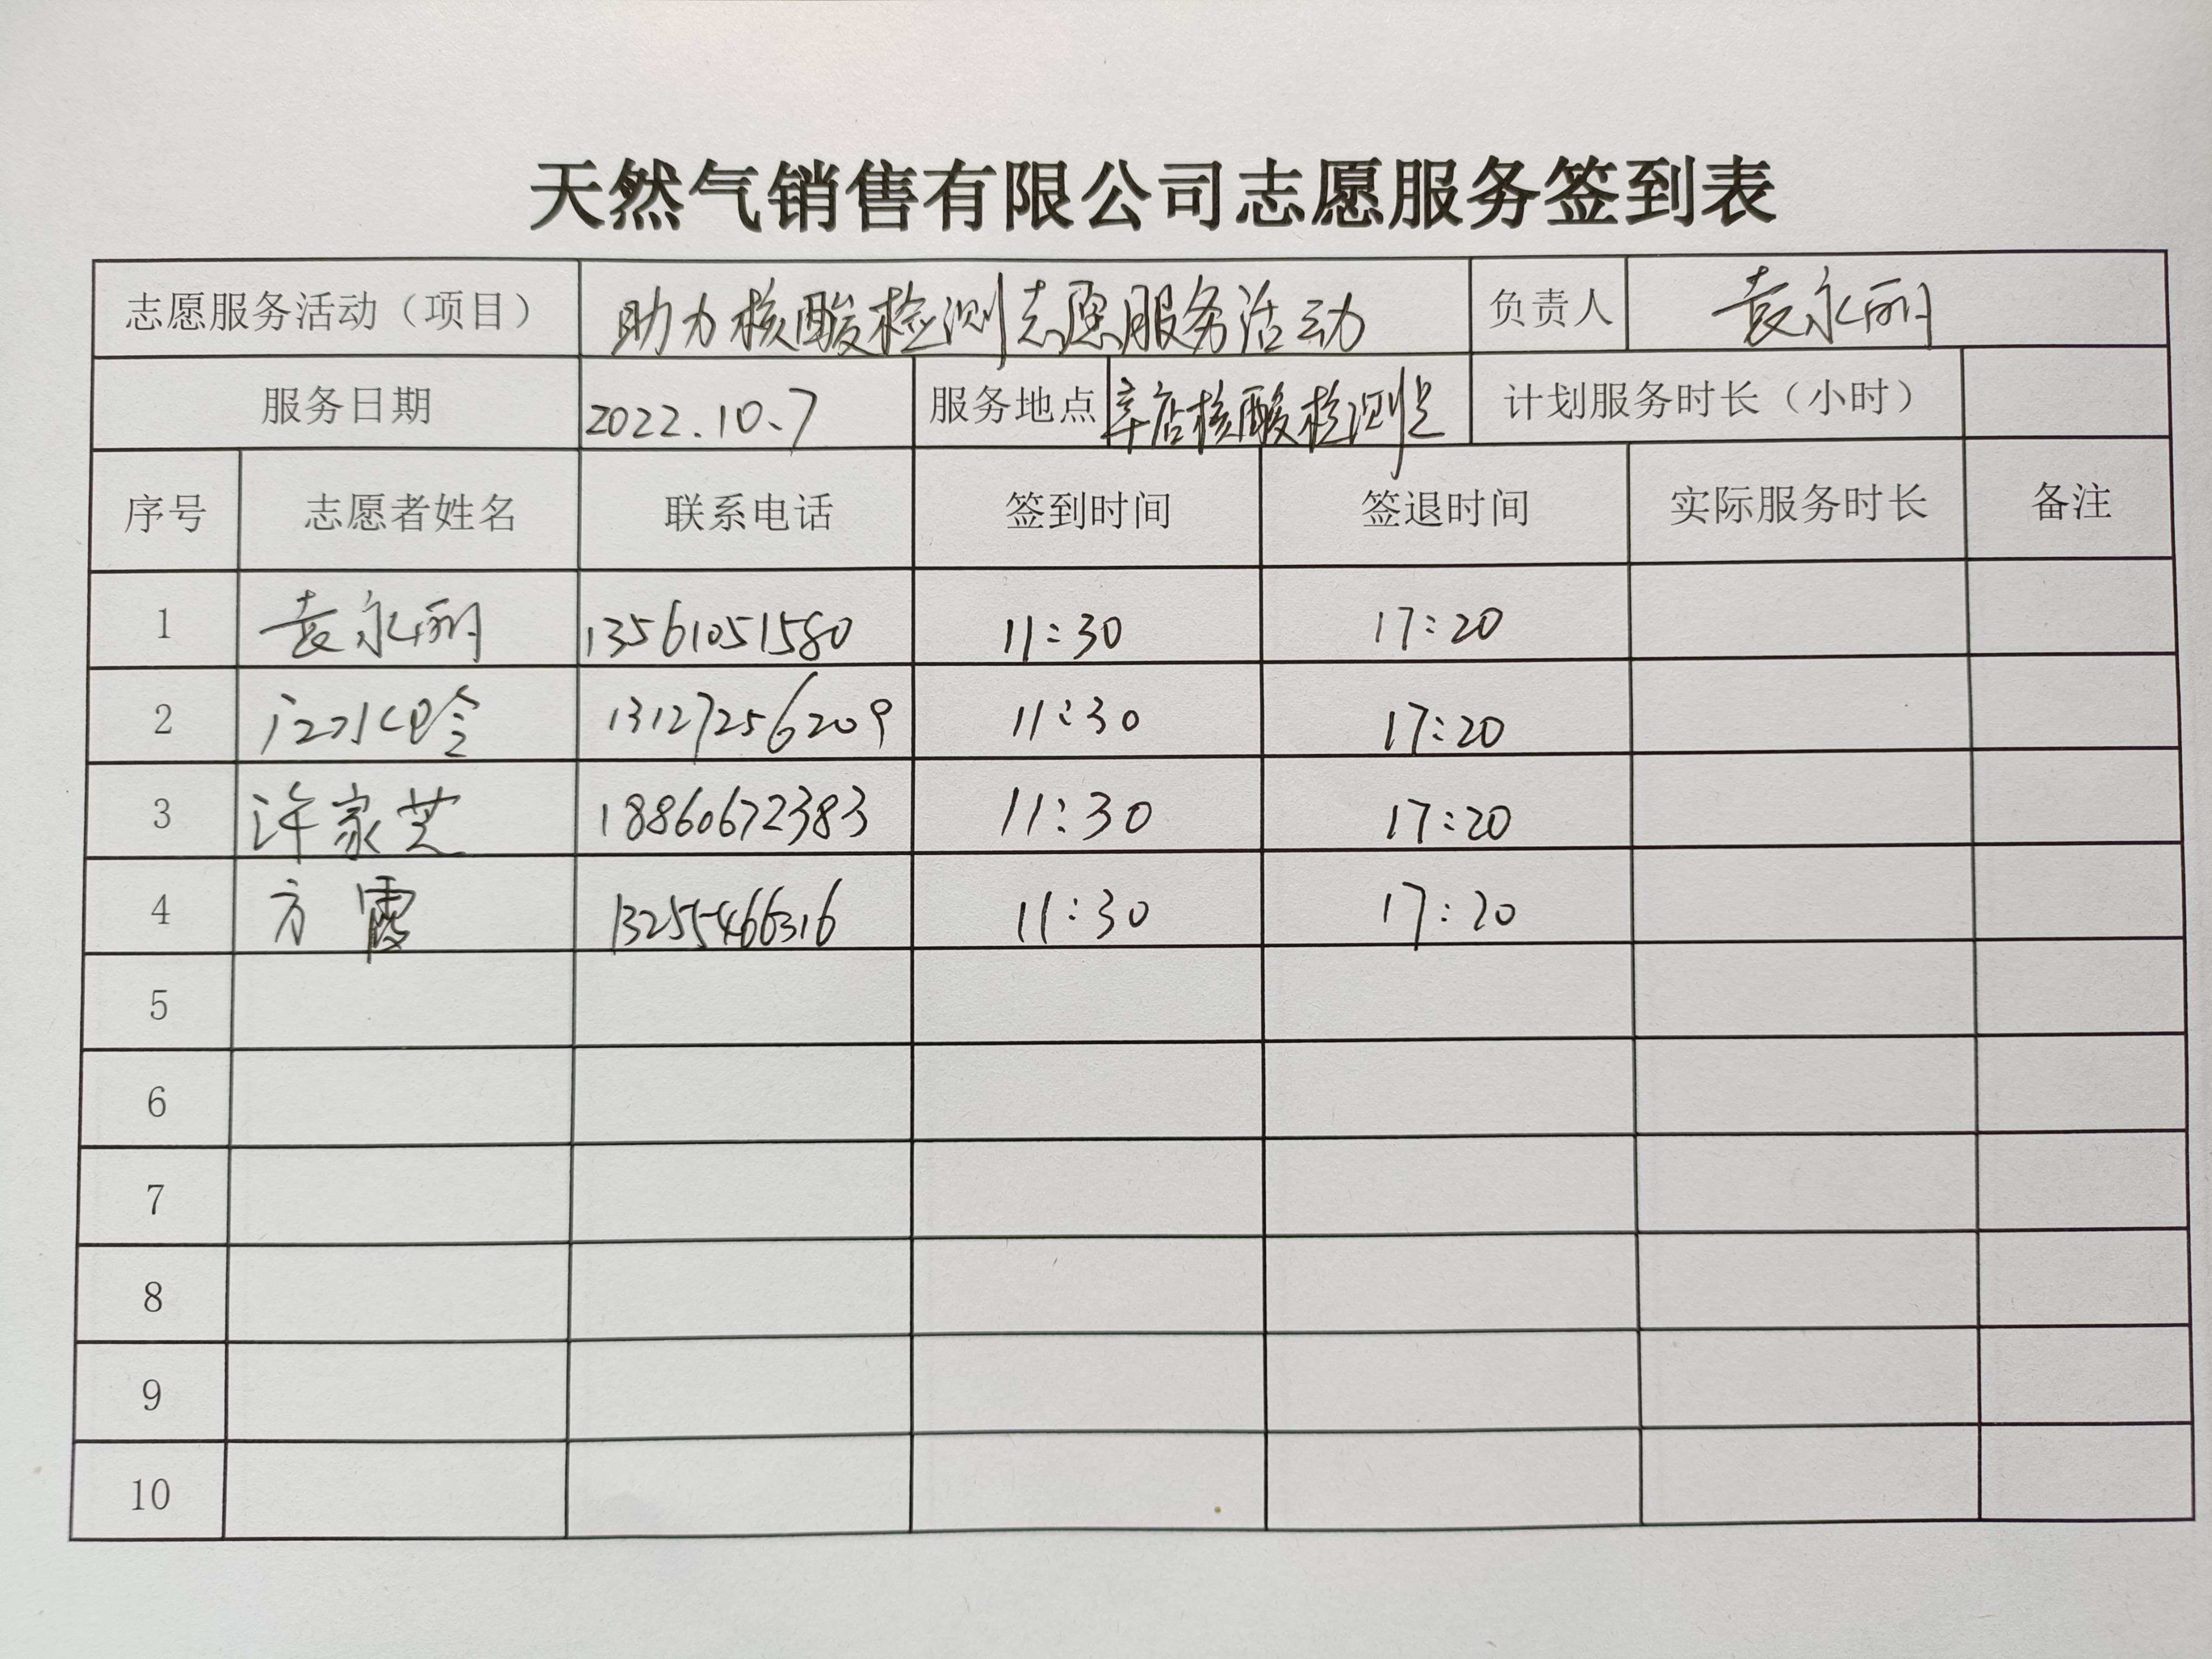 天然气销售有限公司志愿服务签到表
志愿服务活动（项目） 助力核酸检测志愿服务活动 负责人 袁永丽
服务日期 2022.10.7 服务地点 辛店核酸检测点 计划服务时长（小时）
序号 志愿者姓名 联系电话 签到时间 签退时间 实际服务时长 备注
1 袁永丽 13561051580 11:30 17:20
2 13127256209 11:30 17:20
3 许家芝 18860672383 11:30 17:20
4 方霞 13255466316 11:30 17:20
5
6
7
8
9
10